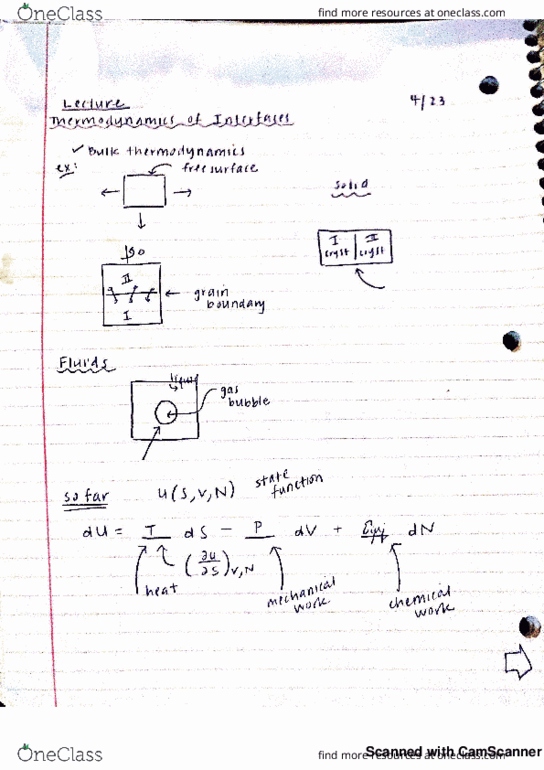 OneClass find more resources at oneclass.com
Lecture 4/23
Thermodynamics of Interfaces
✓ Bulk thermodynamics
ex: free surface
solid
I cryst II cryst
II
grain boundary
I
Fluids
liquid
gas bubble
so far U(S,V,N) state function
dU = T dS - P dV + dN
(∂U/∂S)V,N
heat mechanical work chemical work
OneClass find more resources at oneclass.com
Scanned with CamScanner